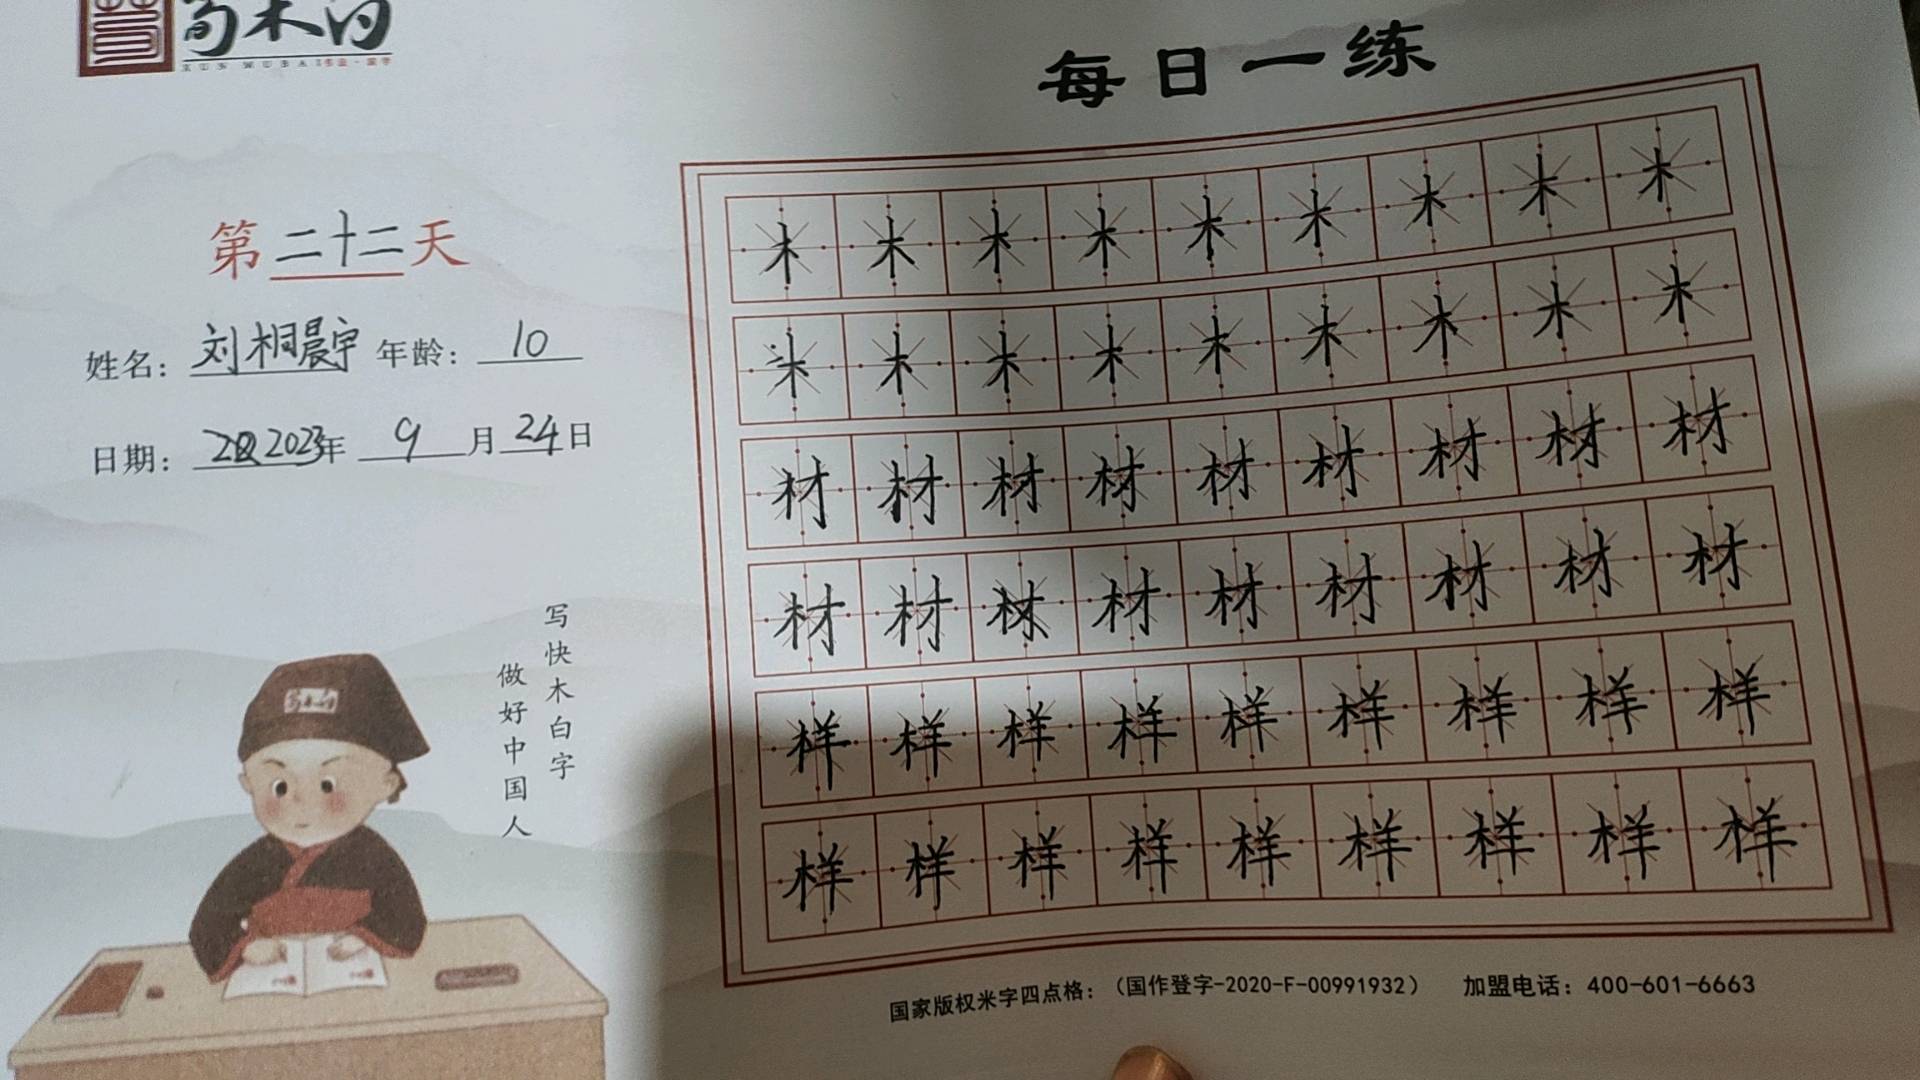 荀木白
XUN MUBAI 书法·国学
每日一练
第二十二天
姓名：刘桐晨宇 年龄：10
日期：2023年 9月24日
写快木白字
做好中国人
木木木木木木木木木
木木木木木木木木木
材材材材材材材材材
材材材材材材材材材
样样样样样样样样样
样样样样样样样样样
国家版权米字四点格：（国作登字-2020-F-00991932） 加盟电话：400-601-6663